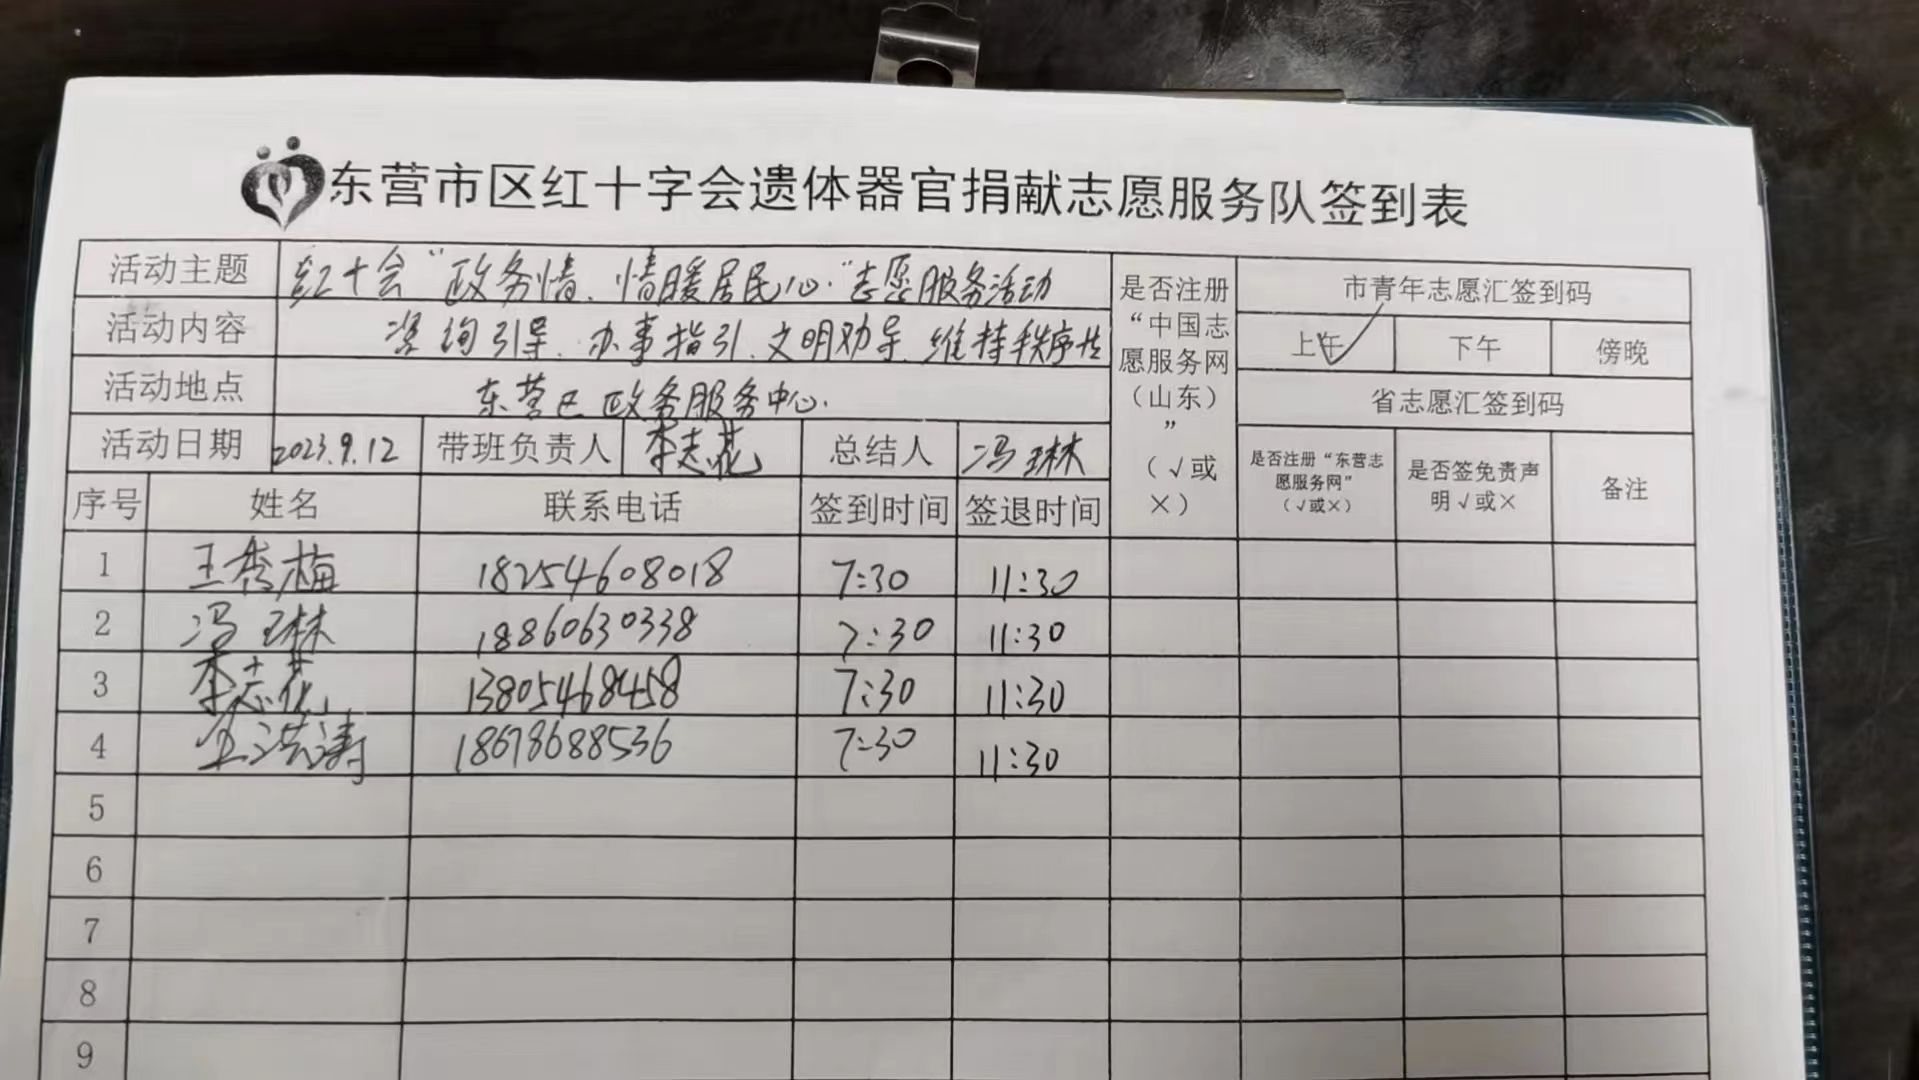 东营市区红十字会遗体器官捐献志愿服务队签到表
活动主题 红十会“政务情、情暖居民心”志愿服务活动 是否注册“中国志愿服务网（山东）”（√或×） 市青年志愿汇签到码
活动内容 咨询引导、办事指引、文明劝导、维持秩序 上午 √ 下午 傍晚
活动地点 东营区政务服务中心. 省志愿汇签到码
活动日期 2023.9.12 带班负责人 李志花 总结人 冯琳 是否注册“东营志愿服务网”（√或×） 是否签免责声明√或× 备注
序号 姓名 联系电话 签到时间 签退时间
1 王秀梅 18254608018 7:30 11:30
2 冯琳 18860630338 7:30 11:30
3 李志花 13805468458 7:30 11:30
4 洪涛 18678688536 7:30 11:30
5
6
7
8
9